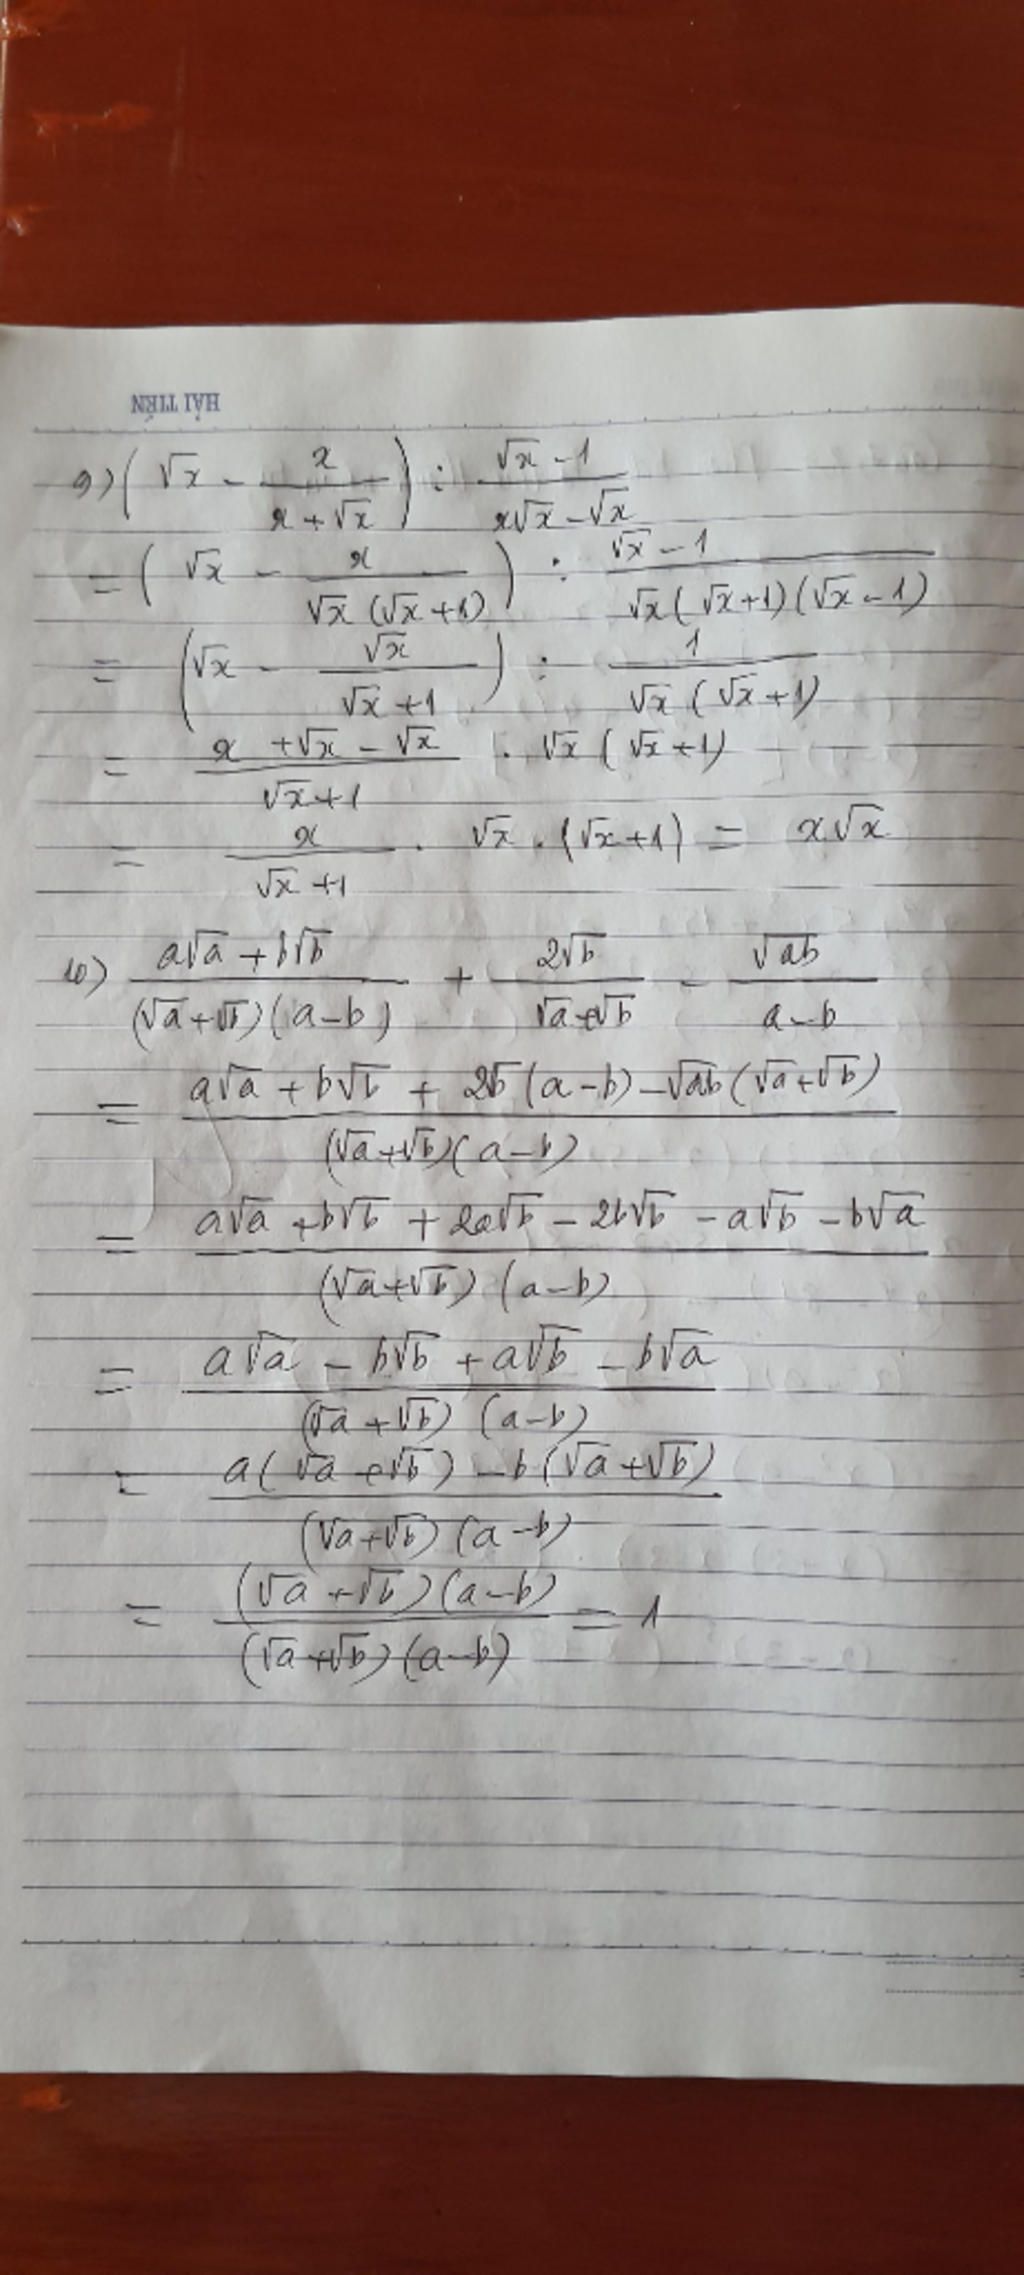 HẢI TIẾN
9) (√x - x/(x+√x)) : (√x - 1)/(x√x - √x)
= (√x - x/(√x(√x+1))) : (√x - 1)/(√x(√x+1)(√x-1))
= (√x - √x/(√x+1)) : 1/(√x(√x+1))
= (x + √x - √x)/(√x+1) . √x(√x+1)
= x/(√x+1) . √x . (√x+1) = x√x
10) (a√a + b√b)/((√a+√b)(a-b)) + 2√b/(√a+√b) - √ab/(a-b)
= (a√a + b√b + 2√b(a-b) - √ab(√a+√b))/((√a+√b)(a-b))
= (a√a + b√b + 2a√b - 2b√b - a√b - b√a)/((√a+√b)(a-b))
= (a√a - b√b + a√b - b√a)/((√a+√b)(a-b))
= (a(√a+√b) - b(√a+√b))/((√a+√b)(a-b))
= ((√a+√b)(a-b))/((√a+√b)(a-b)) = 1